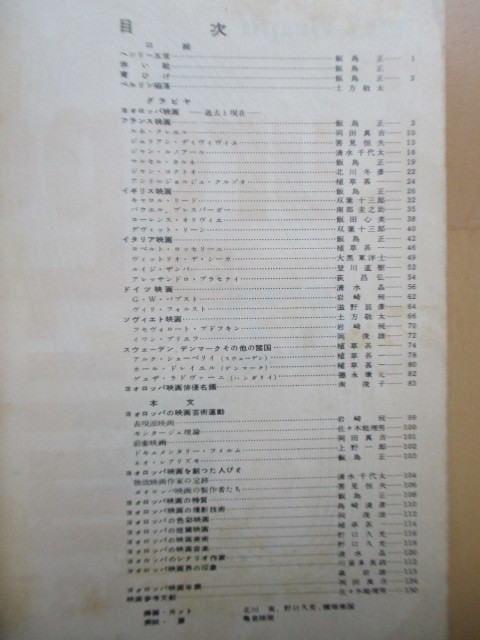 目次
口絵
ヘンリー五世 飯島 正 1
赤い靴 飯島 正
青ひげ 飯島 正 2
ベルリン 土方敬太
グラビヤ
ヨオロッパ映画 ―過去と現在―
フランス映画 飯島 正 3
ルネ・クレエル 岡田真吉 10
ジュリアン・ディヴィヴィエ 筈見恒夫 13
ジャン・ルノアール 清水千代太 16
マルセル・カルネ 飯島 正 19
ジャン・コクトオ 北川冬彦 22
アンリ=ジョルジュ・クルゾオ 植草甚一 24
イギリス映画 飯島 正 26
キャロル・リード 双葉十三郎 32
パウエル、プレスバーガー 南部圭之助 35
ローレンス・オリヴィエ 飯田心美 38
デヴィット・リーン 双葉十三郎 40
イタリア映画 飯島 正 42
ロベルト・ロッセリーニ 植草甚一 46
ヴィットリオ・デ・シーカ 大黒東洋士 49
ルイジ・ザンパ 登川直樹 52
アレッサンドロ・ブラセティ 荻昌弘 54
ドイツ映画 清水 晶 56
G・W・パブスト 岩崎 昶 62
ヴィリ・フォルスト 滋野辰彦 64
ソヴィエト映画 土方敬太 66
フセヴォロート・プドフキン 岩崎 昶 70
イワン・プリエフ 岡 俊雄 72
スウェーデン、デンマークその他の諸国 植草甚一 74
アルフ・シェーベリイ(スウェーデン) 植草甚一 78
カール・ドレイエル(デンマーク) 植草甚一 80
ゲェザ・ラドヴァーニ(ハンガリイ) 徳永康元 82
ヨオロッパ映画俳優名鑑 南 俊子 83
本文
ヨオロッパの映画芸術運動
表現派映画 岩崎 昶 99
モンタージュ理論 佐々木能理男 100
前衛映画 岡田真吉 101
ドキュメンタリー・フィルム 上野一郎 102
ネオ・レアリズモ 飯島 正 103
ヨオロッパ映画を創つた人びと 清水千代太 104
独立映画作家の足跡 筈見恒夫 106
ヨオロッパ映画の製作者たち
ヨオロッパ映画の特質 飯島 正 108
ヨオロッパ映画の撮影技術 島崎清彦 110
ヨオロッパの色彩映画 岡 俊雄 112
ヨオロッパの短篇映画 植草甚一 114
ヨオロッパの映画美術 野口久光 116
ヨオロッパの映画音楽 野口久光 118
ヨオロッパのシナリオ作家 清水 晶 120
ヨオロッパ映画界の印象
ヨオロッパ映画年表 岡田真吉
映画参考文献 佐々木能理男 130
挿画・カット
表紙・扉 亀倉雄策